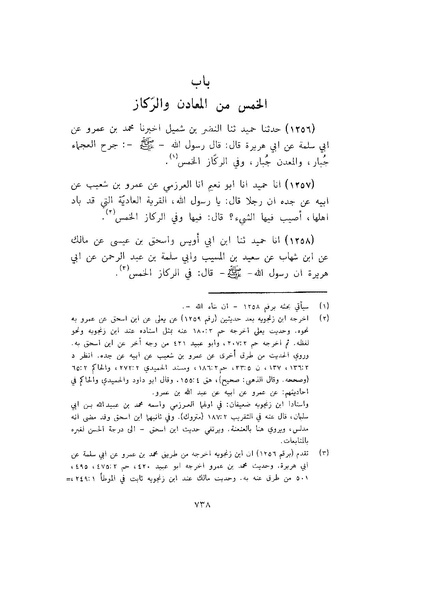 باب
الخمس من المعادن والركاز
(١٢٥٦) حدثنا حميد ثنا النضر بن شميل اخبرنا محمد بن عمرو عن
ابي سلمة عن ابي هريرة قال: قال رسول الله - ﷺ -: جرح العجماء
جُبار، والمعدن جُبار، وفي الركاز الخمس(١).
(١٢٥٧) انا حميد انا ابو نعيم انا العرزمي عن عمرو بن شعيب عن
ابيه عن جده ان رجلا قال: يا رسول الله، القرية العاديّة التي قد باد
اهلها، أصيب فيها الشيء؟ قال: فيها وفي الركاز الخمس(٢).
(١٢٥٨) انا حميد ثنا ابن ابي أويس واسحق بن عيسى عن مالك
عن ابن شهاب عن سعيد بن المسيب وابي سلمة بن عبد الرحمن عن ابي
هريرة ان رسول الله - ﷺ - قال: في الركاز الخمس(٣).
(١) سيأتي بحثه برقم ١٢٥٨ - ان شاء الله -.
(٢) اخرجه ابن زنجويه بعد حديثين (رقم ١٢٥٩) عن يعلى عن ابن اسحق عن عمرو به
نحوه. وحديث يعلى اخرجه حم ٢: ١٨٠ عنه بمثل اسناده عند ابن زنجويه ونحو
لفظه. ثم اخرجه حم ٢: ٢٠٧، وابو عبيد ٤٢١ من وجه آخر عن ابن اسحق به.
وروي الحديث من طرق أخرى عن عمرو بن شعيب عن ابيه عن جده. انظر د
٢: ١٣٦، ١٣٧، ن ٥: ٢٣، حم ٢: ١٨٦، ومسند الحميدي ٢: ٢٧٢، والحاكم ٢: ٦٥
(وصححه. وقال الذهبي: صحيح)، هق ٤: ١٥٥. وقال ابو داود والحميدي والحاكم في
احاديثهم: عن عمرو عن ابيه عن عبد الله بن عمرو.
واسنادا ابن زنجويه ضعيفان: في اولهما العرزمي واسمه محمد بن عبيدالله بن ابي
سلمان، قال عنه في التقريب ٢: ١٨٧ (متروك). وفي ثانيهما ابن اسحق وقد مضى انه
مدلس، ويروي هنا بالعنعنة. ويرتقي حديث ابن اسحق - الى درجة الحسن لغيره
بالمتابعات.
(٣) تقدم (برقم ١٢٥٦) ان ابن زنجويه اخرجه من طريق محمد بن عمرو عن ابي سلمة عن
ابي هريرة. وحديث محمد بن عمرو اخرجه ابو عبيد ٤٢٠، حم ٢: ٤٧٥، ٤٩٥،
٥٠١ من طرق عنه به. وحديث مالك عند ابن زنجويه ثابت في الموطأ ١: ٢٤٩،=
٧٣٨